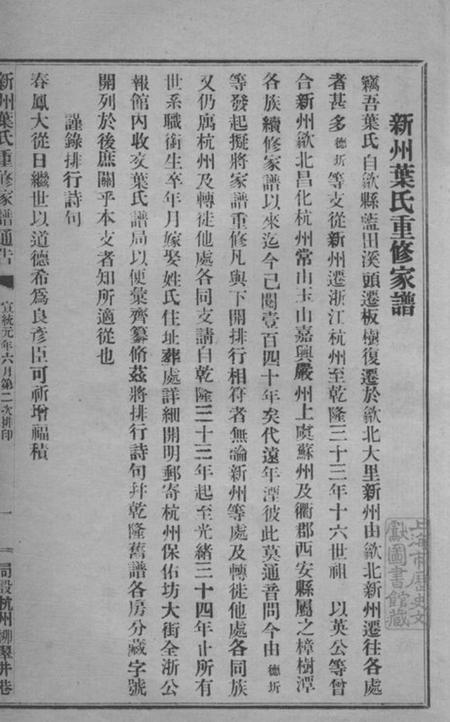 新州葉氏重修家譜
竊吾葉氏自歙縣藍田溪頭遷板樹復遷於歙北大里新州由歙北新州遷往各處
者甚多德圻等支從新州遷浙江杭州至乾隆三十三年十六世祖 以英公等曾
合新州歙北昌化杭州常山玉山嘉興嚴州上虞蘇州及衢郡西安縣屬之樟樹潭
各族續修家譜以來迄今已閱壹百四十年矣代遠年湮彼此莫通音問今由德圻
等發起擬將家譜重修凡與下開排行相符者無論新州等處及轉徙他處各同族
又仍居杭州及轉徙他處各同支請自乾隆三十三年起至光緒三十四年止所有
世系職銜生卒年月嫁娶姓氏住址葬處詳細開明郵寄杭州保佑坊大街全浙公
報館內收交葉氏譜局以便彙齊纂脩茲將排行詩句幷乾隆舊譜各房分藏字號
開列於後庶關乎本支者知所適從也
謹錄排行詩句
春鳳大從日繼世以道德希爲良彥臣可祈增福積
新州葉氏重修家譜通告
宣統元年六月第二次排印
一
局設杭州柳翠井巷
上海市歷史文
獻圖書館藏